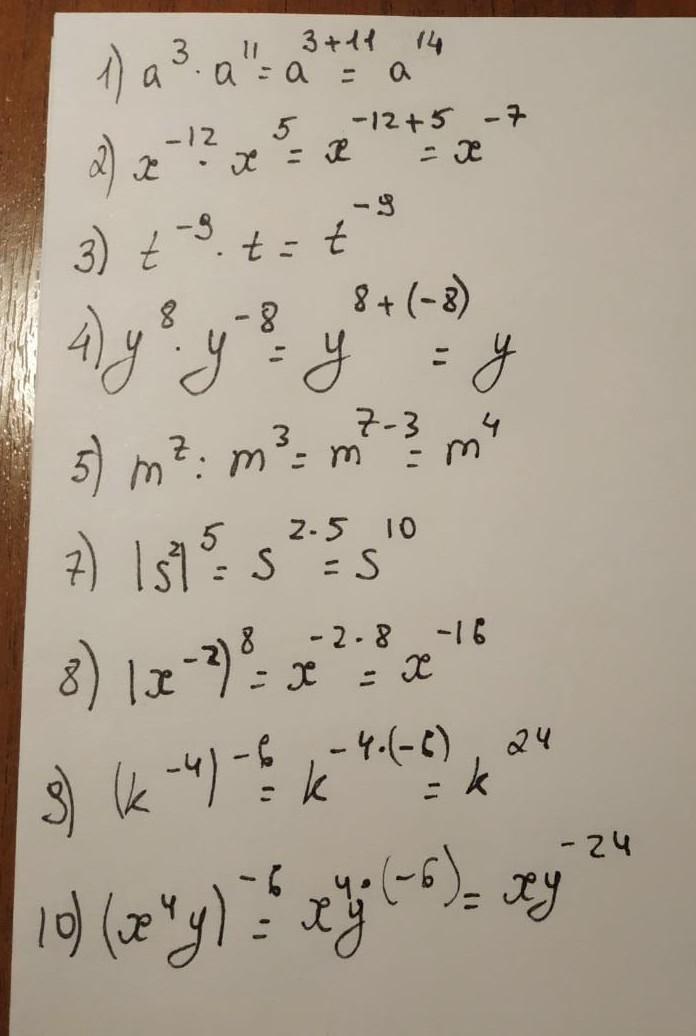 1) a³ · a¹¹ = a³⁺¹¹ = a¹⁴
2) x⁻¹² · x⁵ = x⁻¹²⁺⁵ = x⁻⁷
3) t⁻⁹ · t = t⁻⁹
4) y⁸ · y⁻⁸ = y⁸⁺⁽⁻⁸⁾ = y
5) m⁷ : m³ = m⁷⁻³ = m⁴
7) |s²|⁵ = s^(2·5) = s¹⁰
8) |x⁻²)⁸ = x^(-2·8) = x⁻¹⁶
9) (k⁻⁴)⁻⁶ = k^(-4·(-6)) = k²⁴
10) (x⁴y)⁻⁶ = xy^(4·(-6)) = xy⁻²⁴